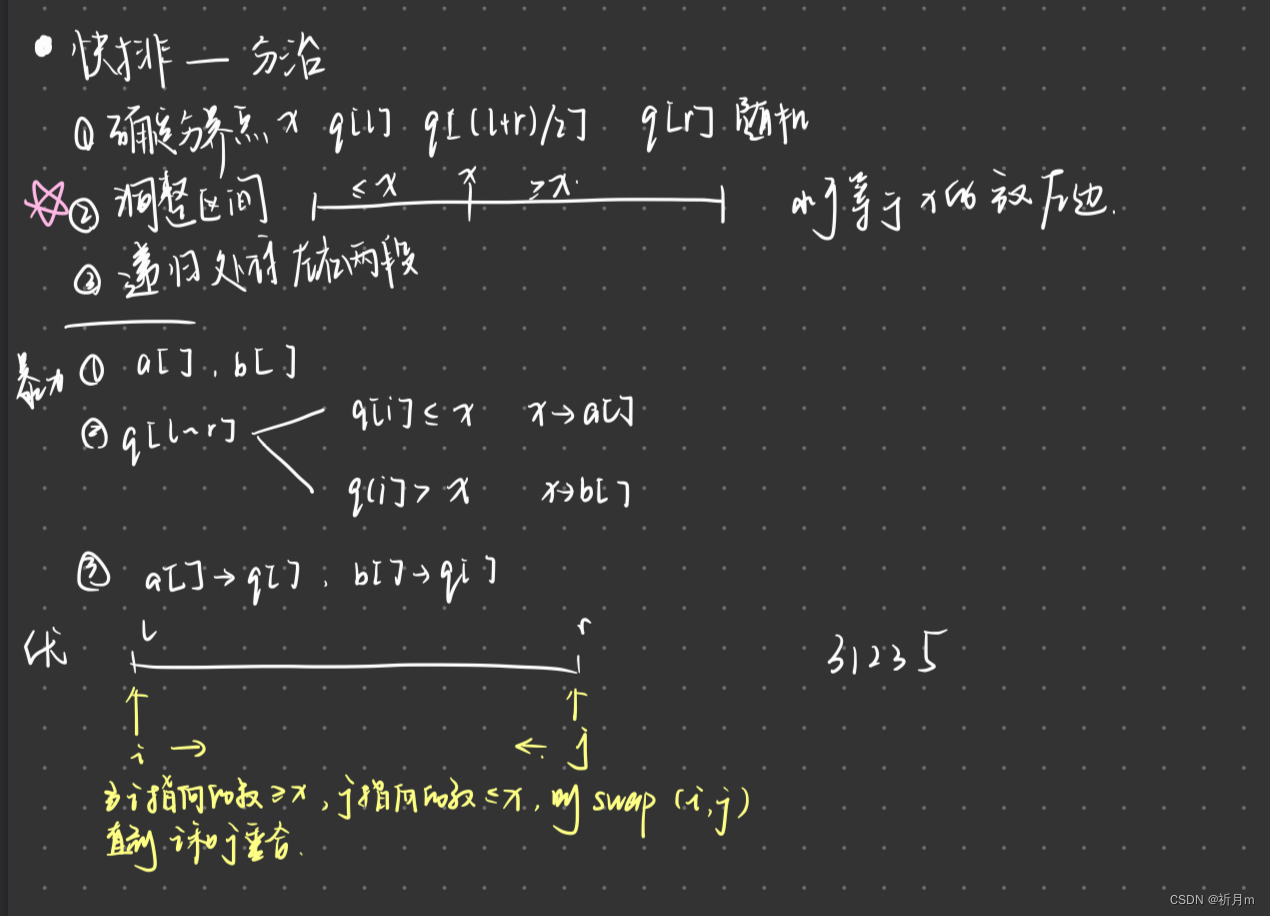 快排 — 分治
① 确定分界点 x q[l] q[(l+r)/2] q[r] 随机
② 调整区间 ≤x x ≥x 小于等于x的放左边.
③ 递归处理左右两段
暴力 ① a[], b[]
② q[l~r] q[i]≤x x→a[]
q[i]>x x→b[]
③ a[]→q[], b[]→q[]
优 l r 31235
i → ← j
当i指向的数≥x, j指向的数≤x, 则 swap(i,j)
直到 i和j重合.
CSDN @祈月m